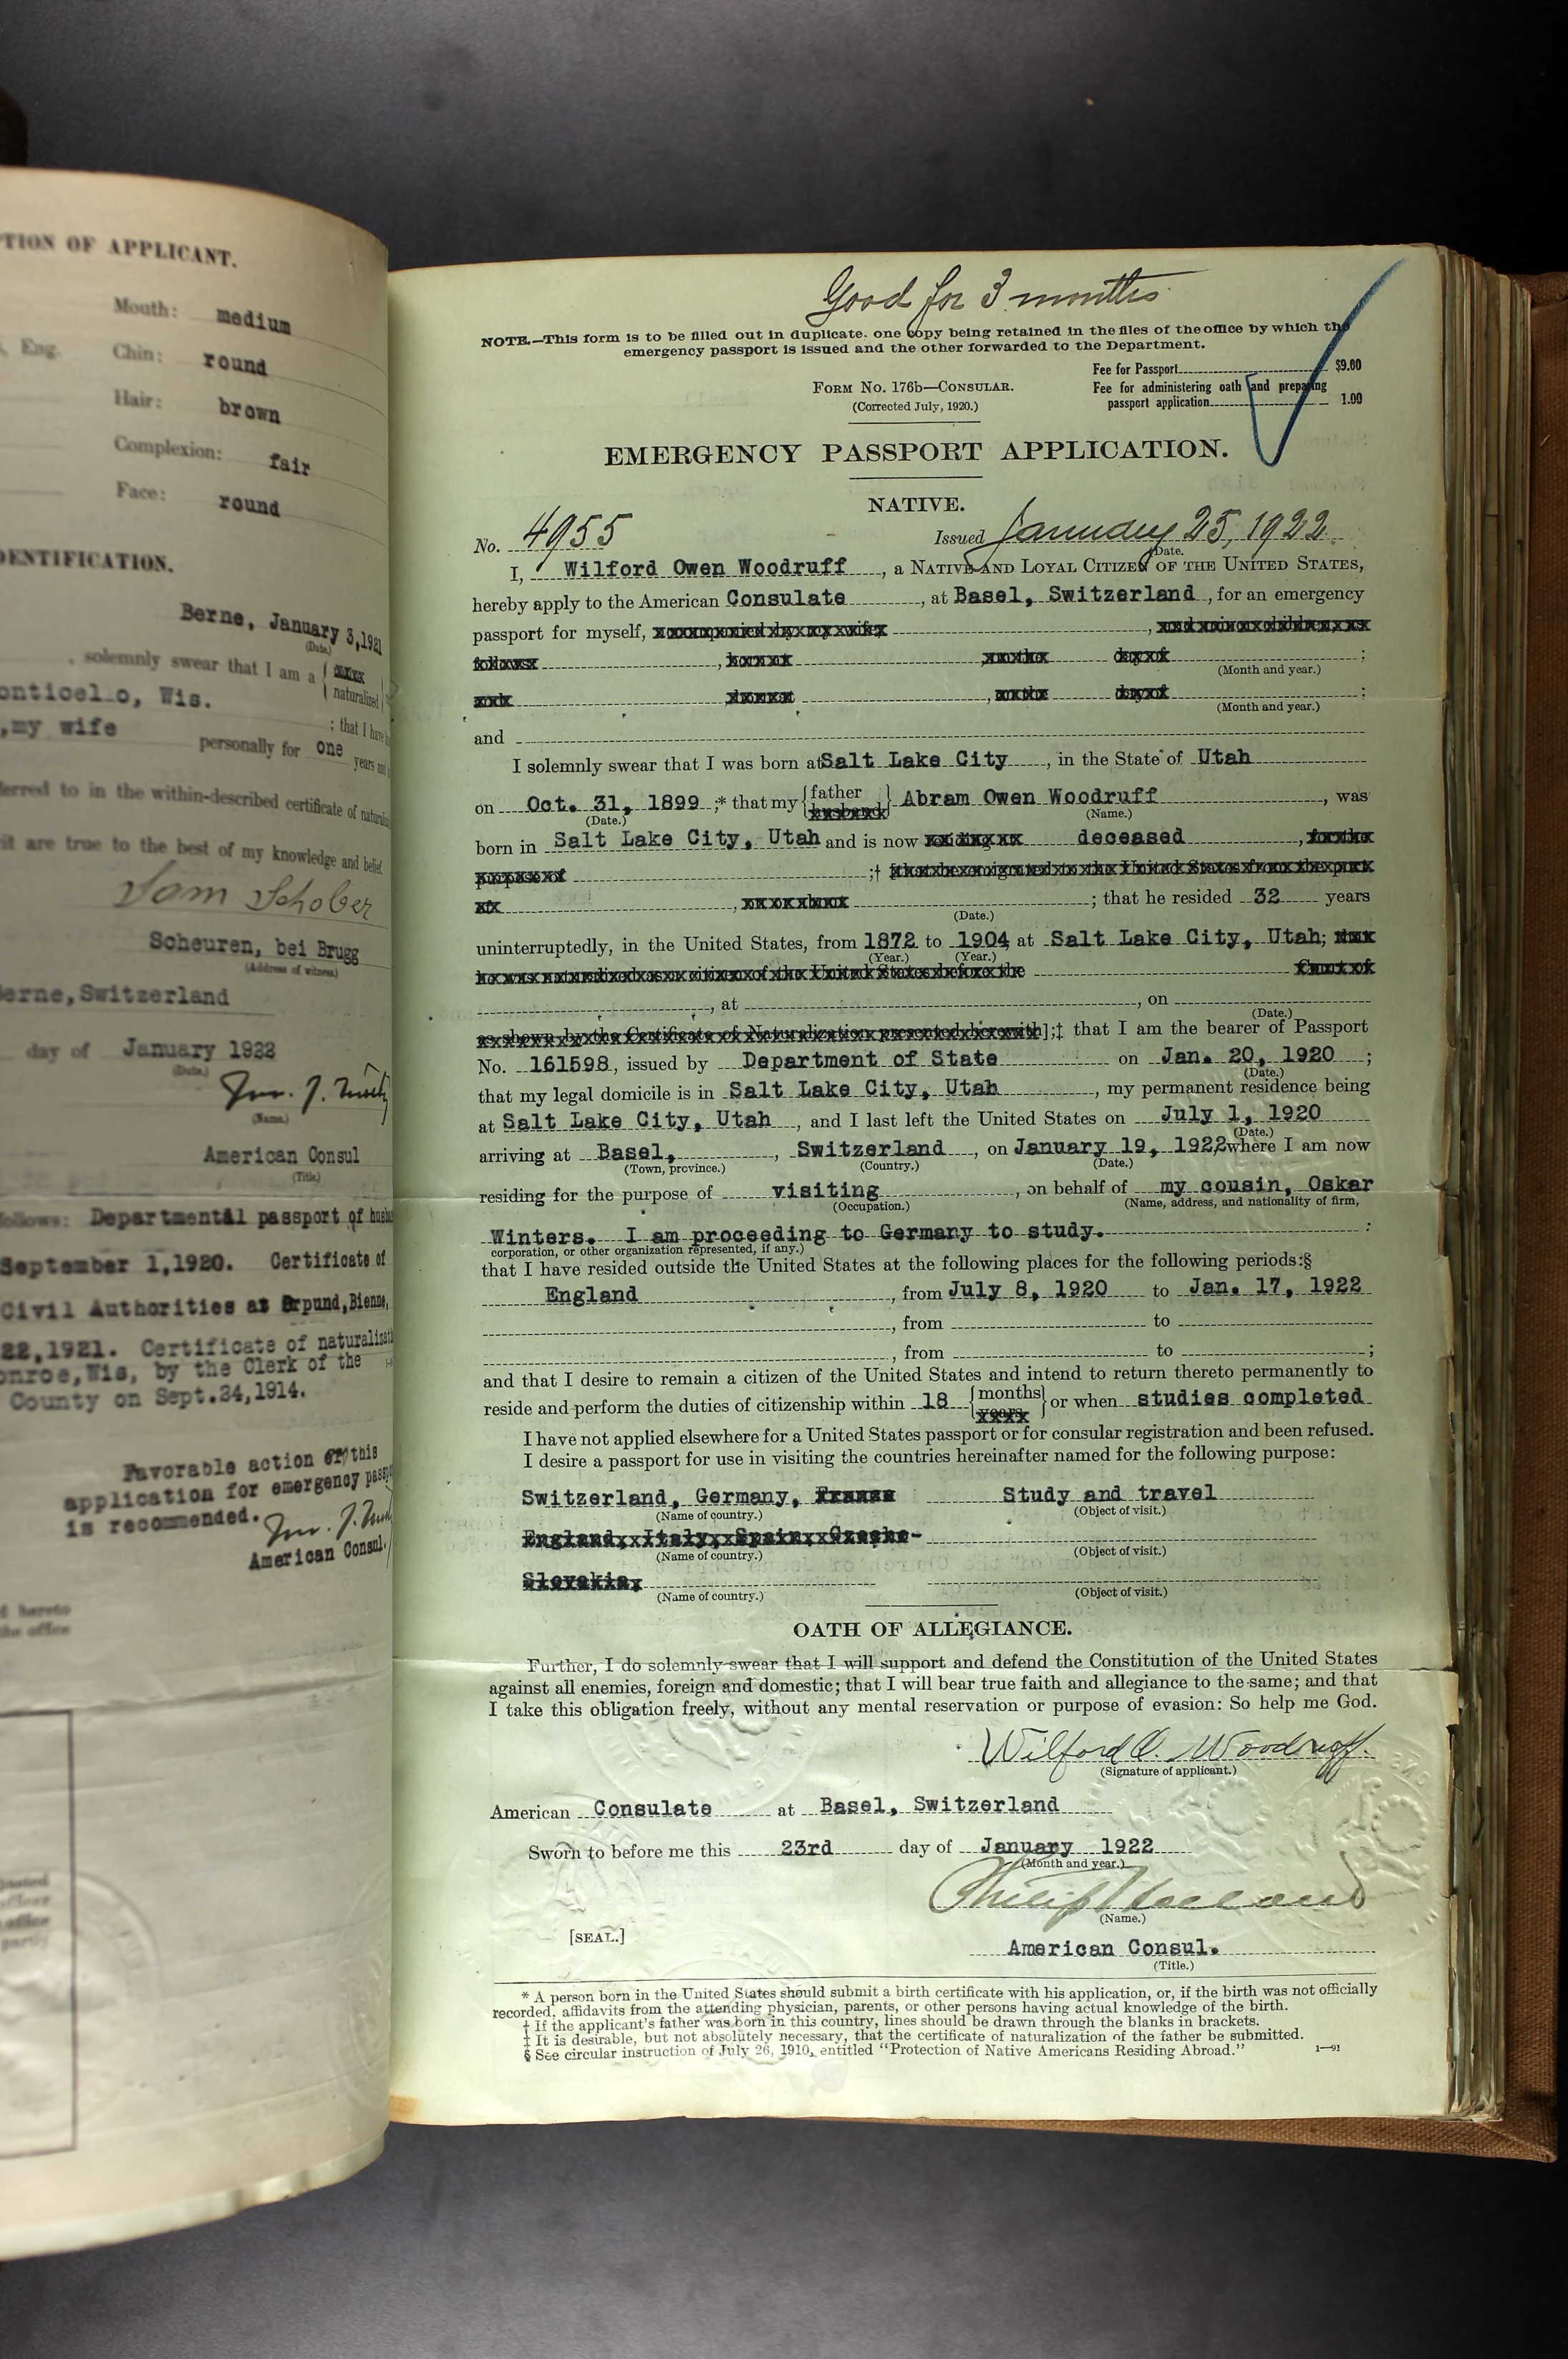 TION OF APPLICANT.
Mouth: medium
, Eng. Chin: round
Hair: brown
Complexion: fair
Face: round
DENTIFICATION.
Berne, January 3,1921
(Date.)
, solemnly swear that I am a
naturalized
onticello, Wis.
,my wife ; that I have
personally for one years and
ferred to in the within-described certificate of
it are true to the best of my knowledge and belief.
Sam Schober
Scheuren, bei Brugg
(Address of witness)
Berne,Switzerland
day of January 1922
(Date.)
(Name.)
American Consul
(Title.)
follows: Departmental passport of
September 1,1920. Certificate of
Civil Authorities at Orpund,Bienne,
22,1921. Certificate of
onroe,Wis, by the Clerk of the
County on Sept.24,1914.
Favorable action on this
application for emergency
is recommended.
American Consul.
d hereto
the office
Good for 3 months
NOTE.—This form is to be filled out in duplicate, one copy being retained in the files of the office by which the
emergency passport is issued and the other forwarded to the Department.
Fee for Passport $9.00
Form No. 176b—Consular. Fee for administering oath and preparing
(Corrected July, 1920.) passport application 1.00
EMERGENCY PASSPORT APPLICATION.
NATIVE.
No. 4955 Issued January 25, 1922
Date.
I, Wilford Owen Woodruff, a Native and Loyal Citizen of the United States,
hereby apply to the American Consulate, at Basel, Switzerland, for an emergency
passport for myself,
;
(Month and year.)
;
(Month and year.)
and
I solemnly swear that I was born at Salt Lake City, in the State of Utah
on Oct. 31, 1899 ;* that my {father husband} Abram Owen Woodruff, was
(Date.) (Name.)
born in Salt Lake City, Utah and is now deceased
;†
; that he resided 32 years
(Date.)
uninterruptedly, in the United States, from 1872 to 1904, at Salt Lake City, Utah;
(Year.) (Year.)
he was naturalized as a citizen of the United States before the Court of
, at , on
(Date.)
as shown by the Certificate of Naturalization presented herewith];‡ that I am the bearer of Passport
No. 161598, issued by Department of State on Jan. 20, 1920 ;
(Date.)
that my legal domicile is in Salt Lake City, Utah, my permanent residence being
at Salt Lake City, Utah, and I last left the United States on July 1, 1920
(Date.)
arriving at Basel, , Switzerland, on January 19, 1922, where I am now
(Town, province.) (Country.) (Date.)
residing for the purpose of visiting, on behalf of my cousin, Oskar
(Occupation.) (Name, address, and nationality of firm,
Winters. I am proceeding to Germany to study. :
corporation, or other organization represented, if any.)
that I have resided outside the United States at the following places for the following periods:§
England, from July 8, 1920 to Jan. 17, 1922
, from to
, from to ;
and that I desire to remain a citizen of the United States and intend to return thereto permanently to
reside and perform the duties of citizenship within 18 {months years} or when studies completed
I have not applied elsewhere for a United States passport or for consular registration and been refused.
I desire a passport for use in visiting the countries hereinafter named for the following purpose:
Switzerland, Germany, France Study and travel
(Name of country.) (Object of visit.)
England, Italy, Spain, Czecho-
(Name of country.) (Object of visit.)
Slovakia,
(Name of country.) (Object of visit.)
OATH OF ALLEGIANCE.
Further, I do solemnly swear that I will support and defend the Constitution of the United States
against all enemies, foreign and domestic; that I will bear true faith and allegiance to the same; and that
I take this obligation freely, without any mental reservation or purpose of evasion: So help me God.
Wilford O. Woodruff.
(Signature of applicant.)
American Consulate at Basel, Switzerland
Sworn to before me this 23rd day of January 1922
(Month and year.)
Philip Holland
(Name.)
[SEAL.]
American Consul.
(Title.)
* A person born in the United States should submit a birth certificate with his application, or, if the birth was not officially
recorded, affidavits from the attending physician, parents, or other persons having actual knowledge of the birth.
† If the applicant's father was born in this country, lines should be drawn through the blanks in brackets.
‡ It is desirable, but not absolutely necessary, that the certificate of naturalization of the father be submitted.
§ See circular instruction of July 26, 1910, entitled "Protection of Native Americans Residing Abroad." 1—91